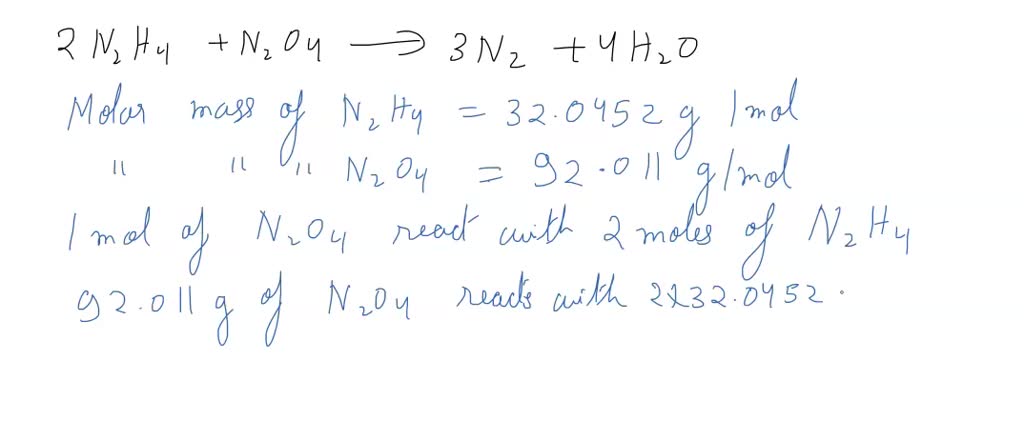 2 N₂H₄ + N₂O₄ → 3N₂ + 4H₂O
Molar mass of N₂H₄ = 32.0452 g /mol
" " " N₂O₄ = 92.011 g/mol
1 mol of N₂O₄ react with 2 moles of N₂H₄
92.011 g of N₂O₄ reacts with 2x32.0452.